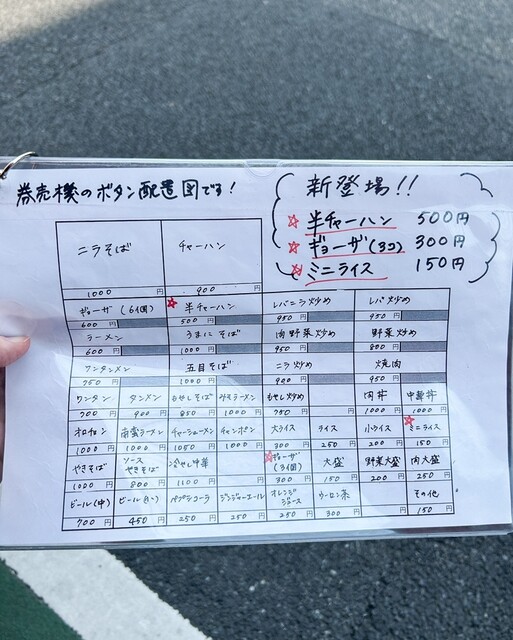 券売機のボタン配置図です!
新登場!!
☆ 半チャーハン 500円
☆ ギョーザ(3コ) 300円
☆ ミニライス 150円
ニラそば チャーハン
1000円 900円
ギョーザ(6個) ☆ 半チャーハン レバニラ炒め レバ炒め
600円 500円 950円 950円
ラーメン うまにそば 肉野菜炒め 野菜炒め
600円 1000円 950円 800円
ワンタンメン 五目そば ニラ炒め 焼肉
750円 1000円 900円 950円
ワンタン タンメン もやしそば みそラーメン もやし炒め 肉丼 中華丼
700円 900円 850円 1000円 750円 1000円 1000円
オロチョン 南蛮ラーメン チャーシューメン チャンポン 大ライス ライス 小ライス ☆ ミニライス
1000円 1000円 1050円 1000円 300円 250円 200円 150円
やきそば ソースやきそば 冷やし中華 ☆ ギョーザ(3個) 大盛 野菜大盛 肉大盛
1000円 800円 1100円 円 300円 150円 200円 250円
ビール(中) ビール(小) ペプシコーラ ジンジャーエール オレンジジュース ウーロン茶 その他
700円 450円 250円 250円 250円 300円 円 150円